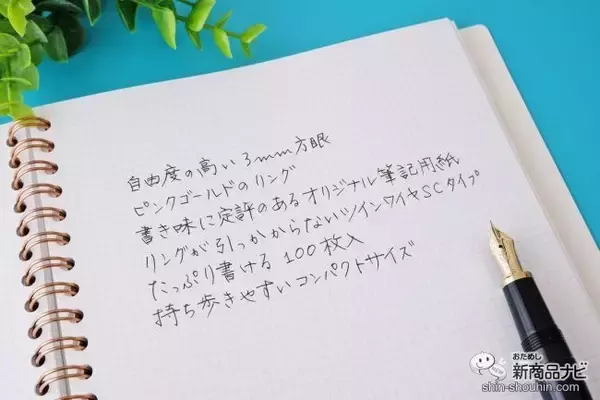 自由度の高い3mm方眼
ピンクゴールドのリング
書き味に定評のあるオリジナル筆記用紙
リングが引っかからないツインワイヤSCタイプ
たっぷり書ける100枚入
持ち歩きやすいコンパクトサイズ
おためし
新商品ナビ
shin-shouhin.com